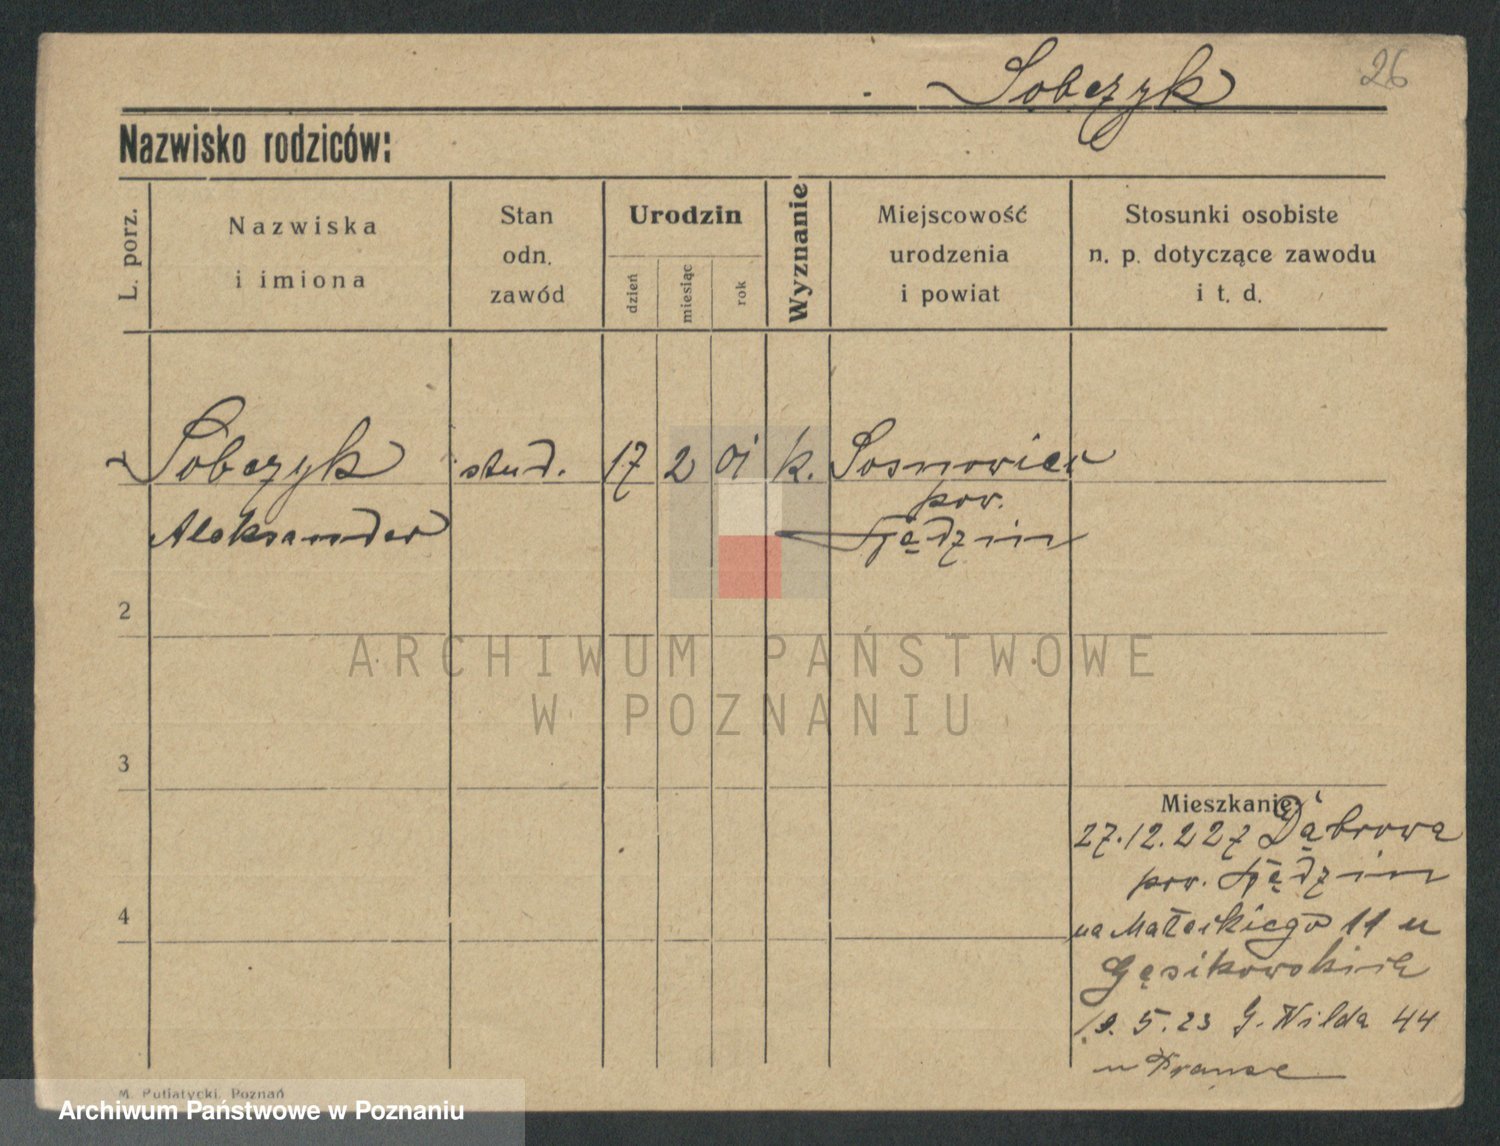 Sobczyk
26
Nazwisko rodziców:
L. porz.
Nazwiska
i imiona
Stan
odn.
zawód
Urodzin
dzień
miesiąc
rok
Wyznanie
Miejscowość
urodzenia
i powiat
Stosunki osobiste
n. p. dotyczące zawodu
i t. d.
Sobczyk stud. 17 2 01 k. Sosnowiec
pow.
Aleksander Będzin
2
3
4
Mieszkanie:
27.12.22 z Dąbrowa
pow. Będzin
na Małeckiego 11 u
Gąsikowskich
19.5.23 G. Wilda 44
u
M. Putiatycki, Poznań
ARCHIWUM PAŃSTWOWE
W POZNANIU
Archiwum Państwowe w Poznaniu